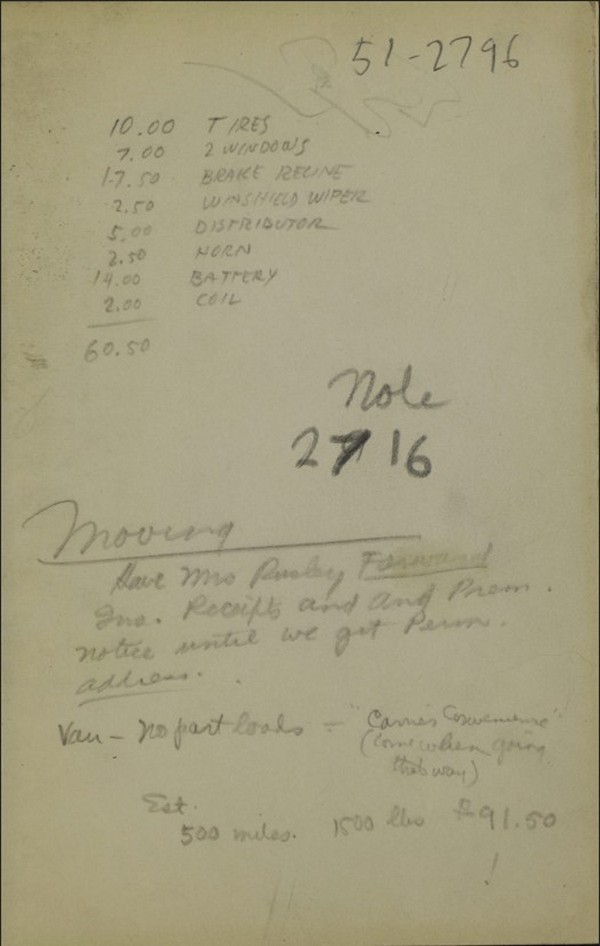 51-2796
10.00 TIRES
7.00 2 WINDOWS
17.50 BRAKE RELINE
2.50 WINSHIELD WIPER
5.00 DISTRIBUTOR
2.50 HORN
14.00 BATTERY
2.00 COIL
60.50
Note
27 16
Moving
Have Mrs Forward
Ins. Receipts and and Prem.
notice until we get Perm.
address.
Van - No part loads - "Carriers Convenience"
(Come when going
that way)
Est.
500 miles. 1500 lbs $91.50
!